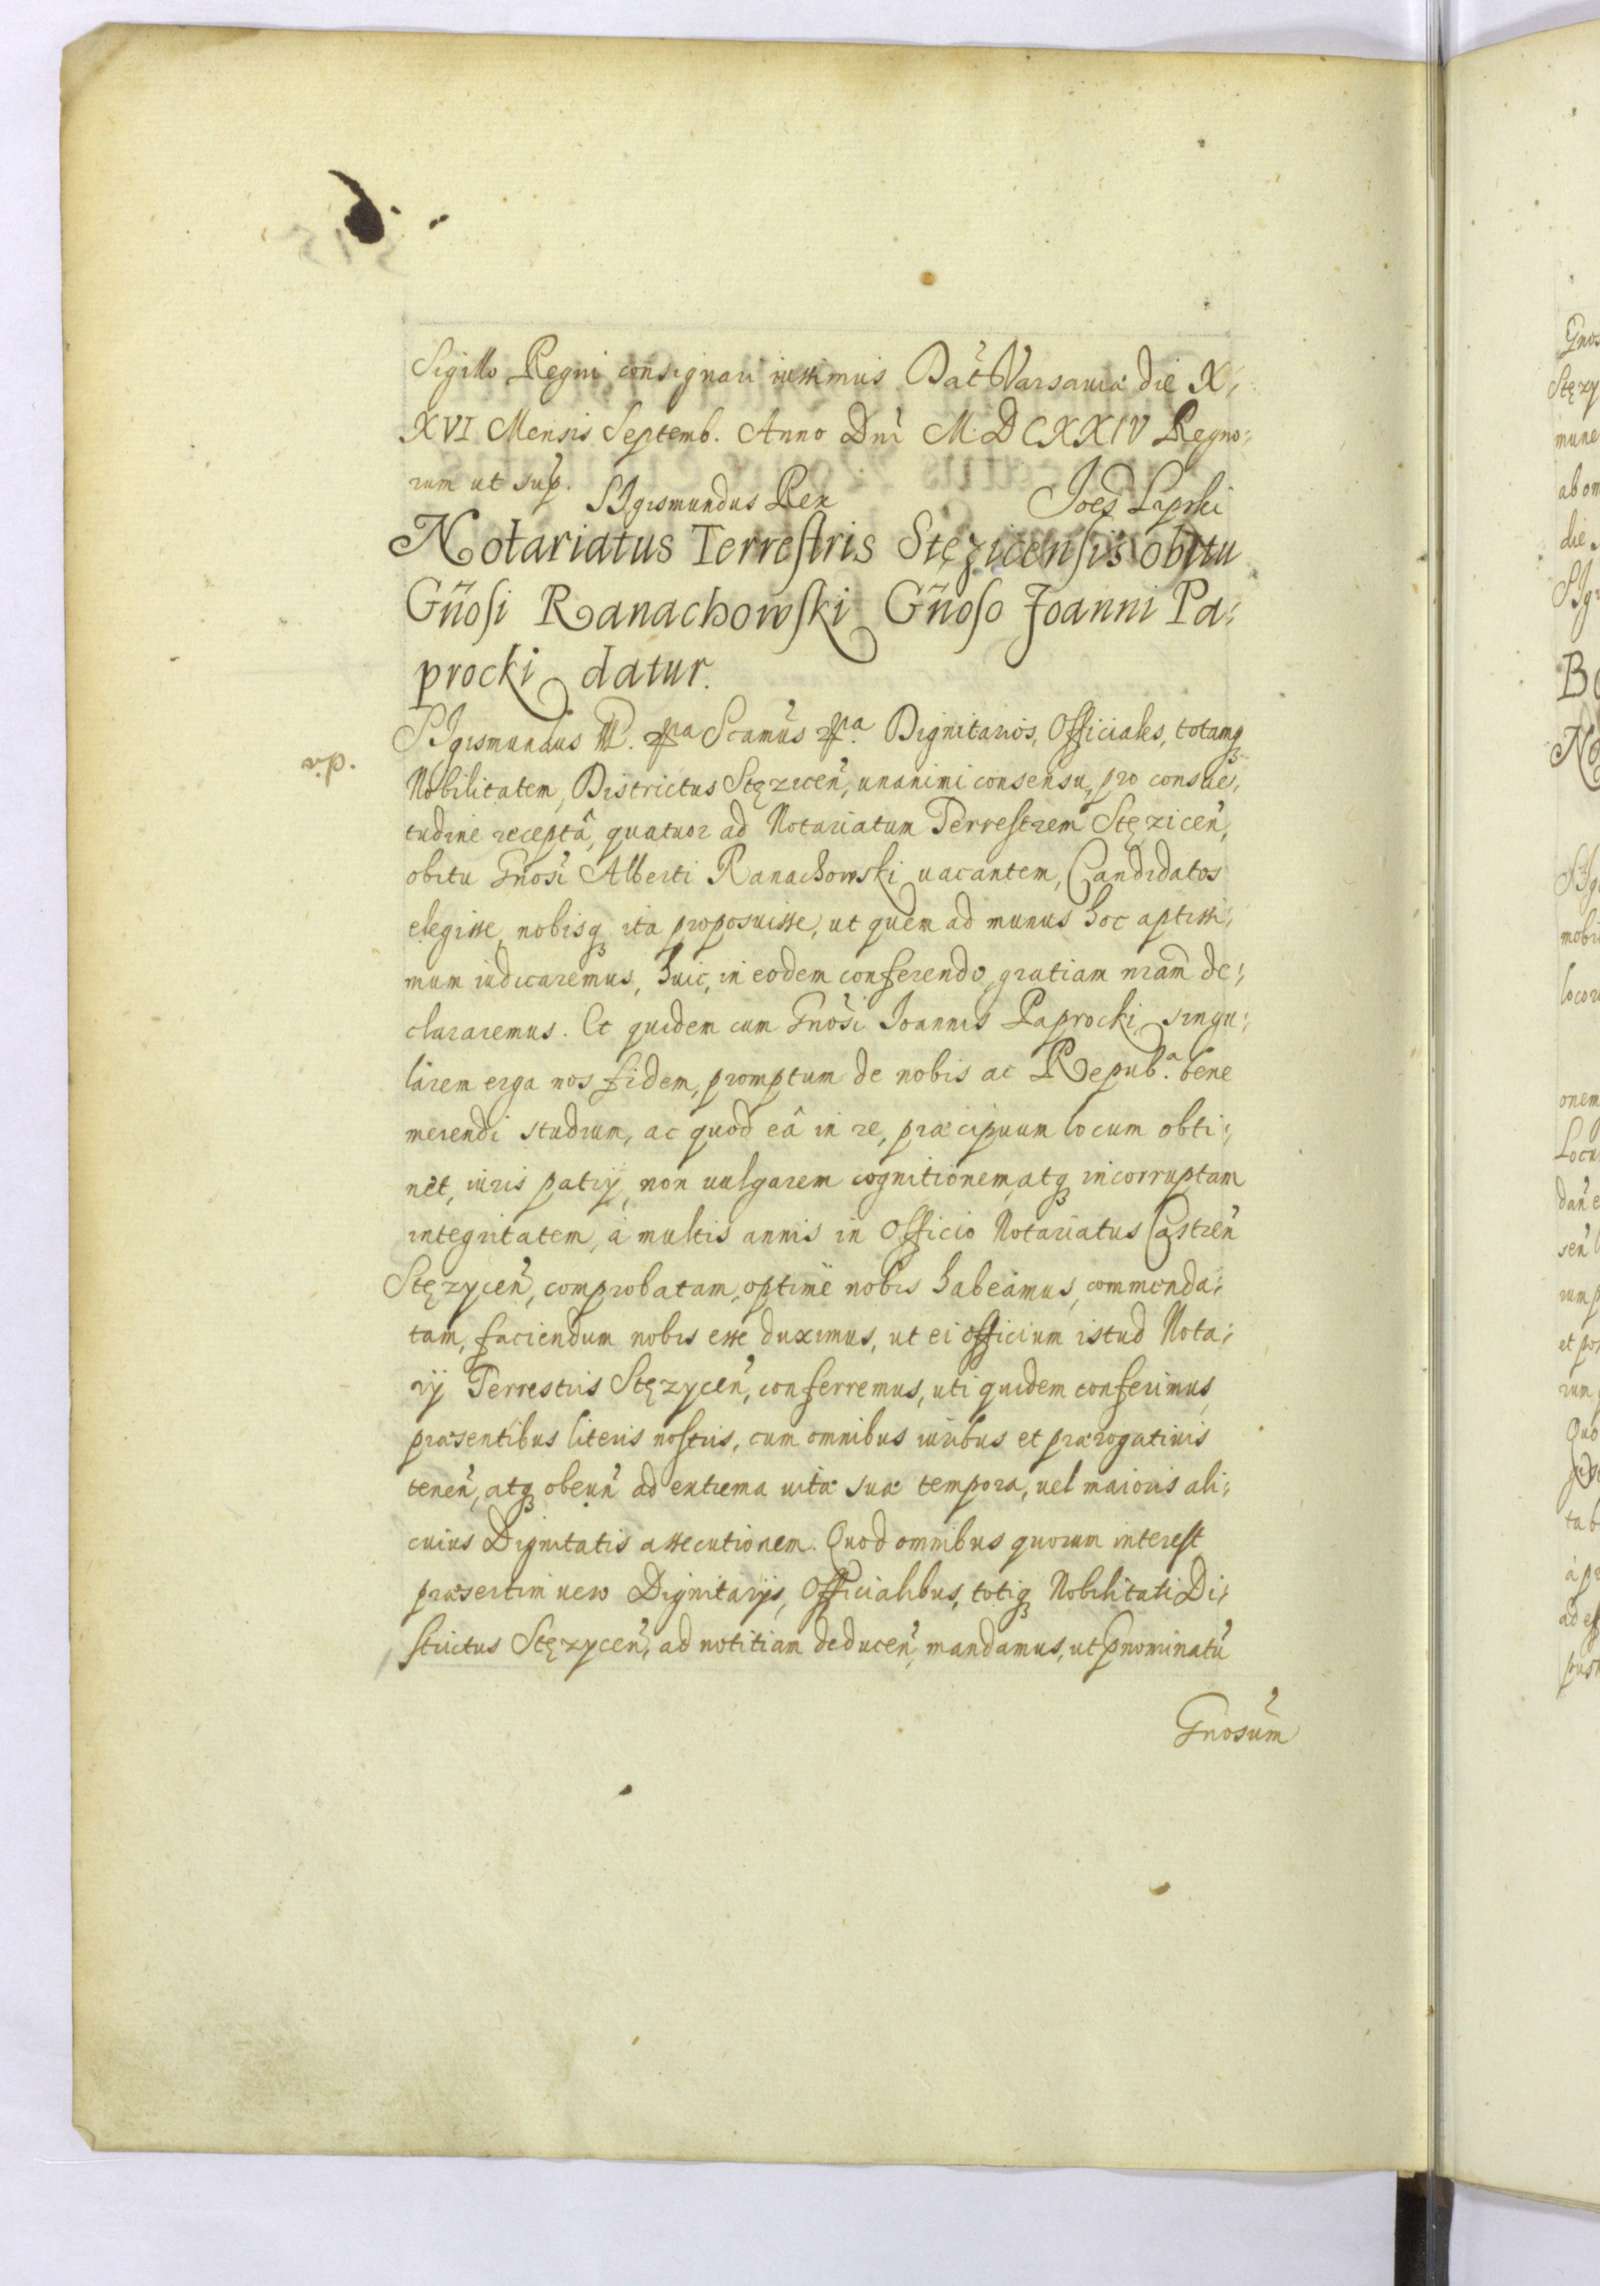 Sigillo Regni consignari iussimus Dat Varsauiæ die X-
XVI Mensis Septemb. Anno Dni M.DCXXIV Regno-
rum ut sup.
SIgismundus Rex Joes
Notariatus Terrestris Stęzicensis obitu
Gnosi Ranachowski Gnoso Joanni Pa-
procki datur.
SIgismundus III. &ra Scamus &ra. Dignitarios, Officiales, totamq
Nobilitatem, Districtus Stęzicen, unanimi consensu, pro consue-
tudine receptâ, quatuor ad Notariatum Terrestrem Stęzicen,
obitu Gnosi Alberti Ranachowski uacantem, Candidatos
elegisse, nobisq ita proposuisse, ut quem ad munus hoc aptissi-
mum iudicaremus, huic, in eodem conferendo, gratiam nram de-
clararemus. Et quidem cum Gnosi Ioannis Paprocki singu-
larem erga nos fidem, promptum de nobis ac Repub.a bene
merendi studium, ac quod eâ in re, præcipuum locum obti-
net, iuris patrij, non uulgarem cognitionem, atq incorruptam
integritatem, à multis annis in Officio Notariatus Castren
Stęzycen, comprobatam, optime nobis habeamus, commenda-
tam, faciendum nobis esse duximus, ut ei officium istud Nota-
rij Terrestris Stęzycen, conferremus, uti quidem conferimus,
præsentibus literis nostris, cum omnibus iuribus et prærogatiuis
tenen, atq obeun ad extrema uitæ suæ tempora, uel maioris ali-
cuius Dignitatis assecutionem. Quod omnibus quorum interest
præsertim uero Dignitarijs, Officialibus, totiq Nobilitati Di-
strictus Stęzycen, ad notitiam deducen, mandamus, ut pnominatu
Gnosum